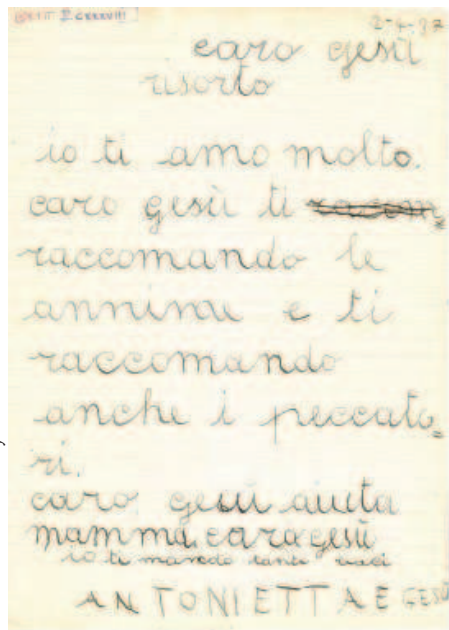 2-4-37
caro gesù
risorto
io ti amo molto.
caro gesù ti
raccomando le
annime e ti
raccomando
anche i peccato=
ri.
caro gesù aiuta
mamma, caro gesù
io ti mando tanti baci
ANTONIETTA E GESÙ